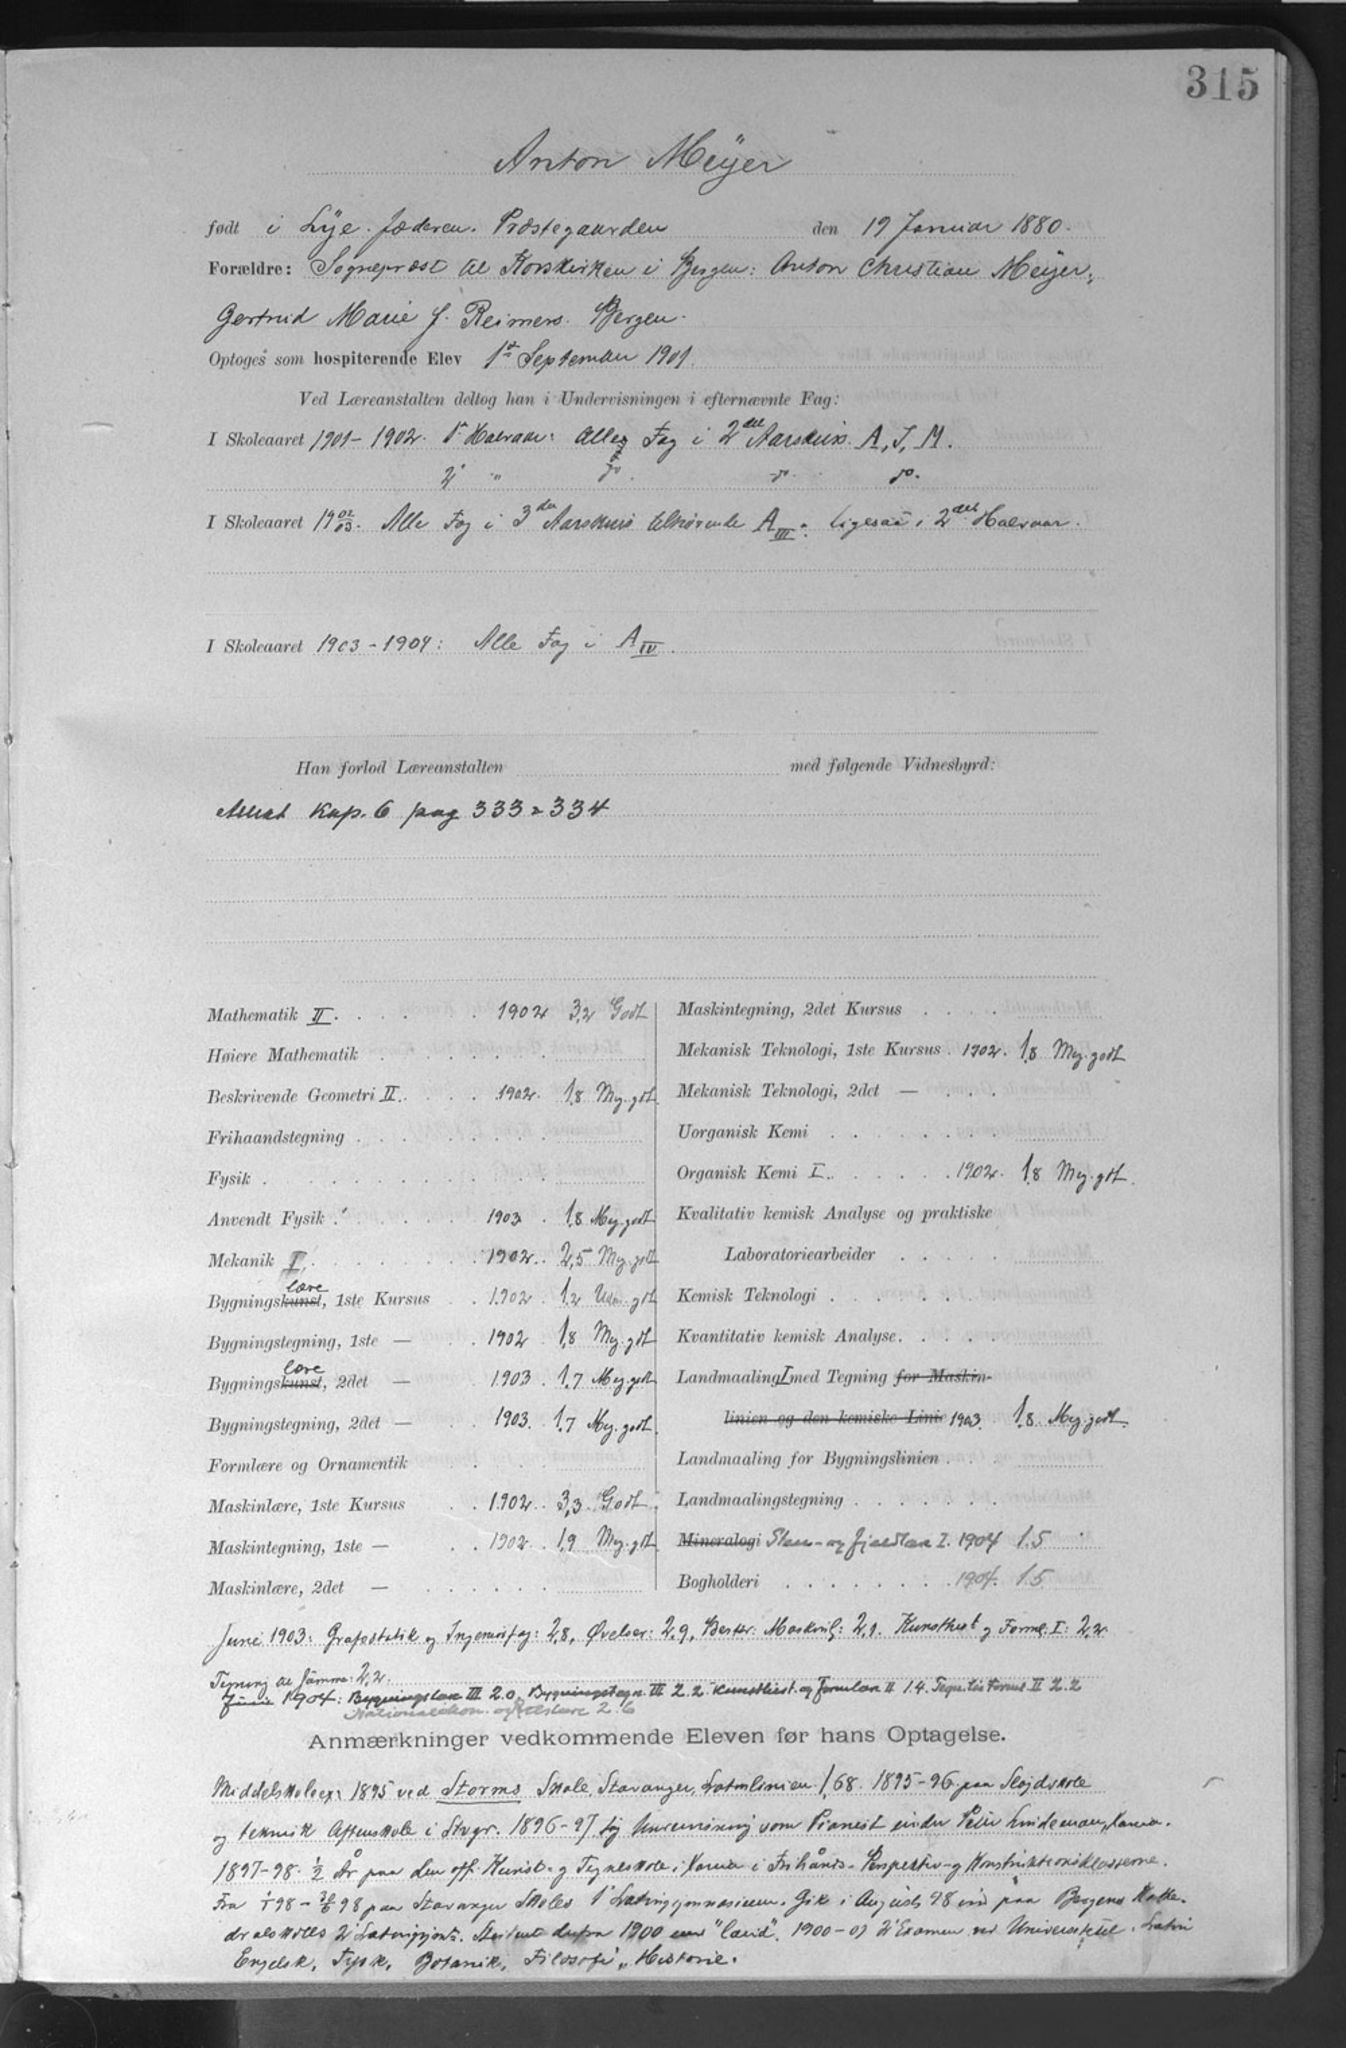 315
Anton Meÿer
født i Lÿe. Jæderen. Præstegaarden den 19 Januar 1880.
Forældre: Sogneprest til Korskirken i Bergen: Anton Christian Meÿer,
Gertrud Marie f. Reimers. Bergen.
Optoges som hospiterende Elev 1st September 1901.
Ved Læreanstalten deltog han i Undervisningen i efternævnte Fag:
I Skoleaaret 1901-1902. 1st Halvaar: Alle Fag i 2det Aarskurs. A, I, M.
2t " do. do. do.
I Skoleaaret 1902/03. Alle Fag i 3die Aarskurs tilhørende A III. Ligesaa i 2det Halvaar.
I Skoleaaret 1903-1904: Alle Fag i A IV.
Han forlod Læreanstalten med følgende Vidnesbyrd:
Attest Kop. 6 pag 333 & 334
Mathematik II. 1902 3,2 Godt
Høiere Mathematik
Beskrivende Geometri II. 1902. 1,8 Meg. gdt.
Frihaandstegning
Fysik
Anvendt Fysik 1903 1,8 Meg. godt
Mekanik I. 1902. 2,5 Meg. godt
lære
Bygningskunst, 1ste Kursus 1902 1,2 Udm. gdt
Bygningstegning, 1ste — 1902 1,8 Meg. gdt
lære
Bygningskunst, 2det — 1903. 1,7 Meg. godt
Bygningstegning, 2det — 1903. 1,7 Meg. godt.
Formlære og Ornamentik
Maskinlære, 1ste Kursus 1902. 3,3 Godt.
Maskintegning, 1ste — 1902. 1,9 Meg. gdt.
Maskinlære, 2det —
Maskintegning, 2det Kursus
Mekanisk Teknologi, 1ste Kursus 1902. 1,8 Meg. godt
Mekanisk Teknologi, 2det —
Uorganisk Kemi
Organisk Kemi I. 1902. 1,8 Meg. gdt.
Kvalitativ kemisk Analyse og praktiske
Laboratoriearbeider
Kemisk Teknologi
Kvantitativ kemisk Analyse.
Landmaaling I med Tegning for Maskin-
linien og den kemiske Linie 1903. 1,8 Meg. godt.
Landmaaling for Bygningslinien
Landmaalingstegning
Mineralogi Sten- og fjeldlære I. 1904 1.5
Bogholderi 1904. 1.5
Juni 1903: Grafostatik og Ingeniørfag: 2,8, Øvelser: 2,9, Beskr. Maskinl: 2,1. Kunsthist. og Forml. I: 2,2.
Tegning til samme: 2,2.
Juni 1904: Bygningslære III 2.0. Bygningstegn. III 2.2. Kunsthist. og formlære II 1.4. Tegn. til Forml. II 2.2
Nationaløkon. og Retslære 2.6
Anmærkninger vedkommende Eleven før hans Optagelse.
Middelskolex. 1895 ved Storms Skole, Stavanger, Latinlinien. 1,68. 1895-96. paa Sløjdskole
og teknisk Aftenskole i Stvgr. 1896-97 tog Undervisning som Pianist under Peter Lindeman,
1897-98. 1/2 År paa den off. Kunst- og Tegneskole i i Frihånds- Perspektiv- og Konstruktionsklasserne.
Fra 98 - 98 paa Stavanger Skoles 1' Latingymnasium. Gik i August 98 ind paa Bergens Kathe-
dralskoles 2' Latingymn. Student derfra 1900 med "laud". 1900-01 2' Examen ved Universitetet. Latin
Engelsk, Tysk, Botanik, Filosofi, Historie.